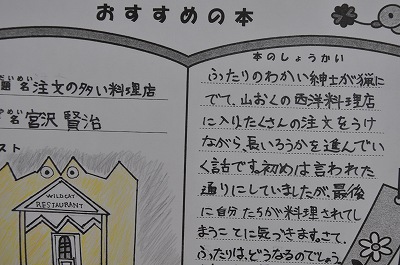 おすすめの本
だいめい
題名 注文の多い料理店
名 宮沢 賢治
スト
WILDCAT
RESTAURANT
本のしょうかい
ふたりのわかい紳士が猟に
でて、山おくの西洋料理店
に入り、たくさんの注文をうけ
ながら、長いろうかを進んでい
く話です。初めは言われた
通りにしていましたが、最後
に自分たちが料理されてし
まうことに気づきます。さて、
ふたりは、どうなるのでしょう。